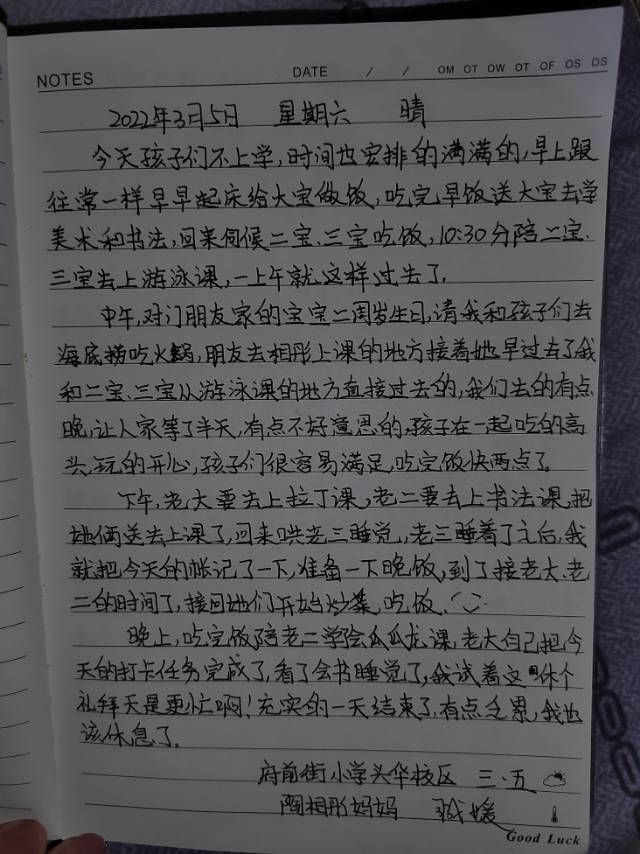 NOTES DATE / / OM OT OW OT OF OS OS
2022年3月5日 星期六 晴
今天孩子们不上学,时间也安排的满满的,早上跟
往常一样早早起床给大宝做饭,吃完早饭送大宝去学
美术和书法,回来伺候二宝、三宝吃饭,10:30分陪二宝、
三宝去上游泳课,一上午就这样过去了。
中午,对门朋友家的宝宝二周岁生日,请我和孩子们去
海底捞吃火锅,朋友去相彤上课的地方接着她早过去了我
和二宝、三宝从游泳课的地方直接过去的,我们去的有点
晚,让人家等了半天,有点不好意思的,孩子在一起吃的高
兴,玩的开心,孩子们很容易满足,吃完饭快两点了。
下午,老大要去上拉丁课,老二要去上书法课,把
她俩送去上课了,回来哄老三睡觉,老三睡着了之后,我
就把今天的帐记了一下,准备一下晚饭,到了接老大、老
二的时间了,接回她们开始炒菜,吃饭。
晚上,吃完饭陪老二学会瓜瓜龙课,老大自己把今
天的打卡任务完成了,看了会书睡觉了,我试着这休个
礼拜天是更忙啊!充实的一天结束了,有点乏累,我也
该休息了。
府前街小学头华校区 三·五
陶相彤妈妈 媛
Good Luck